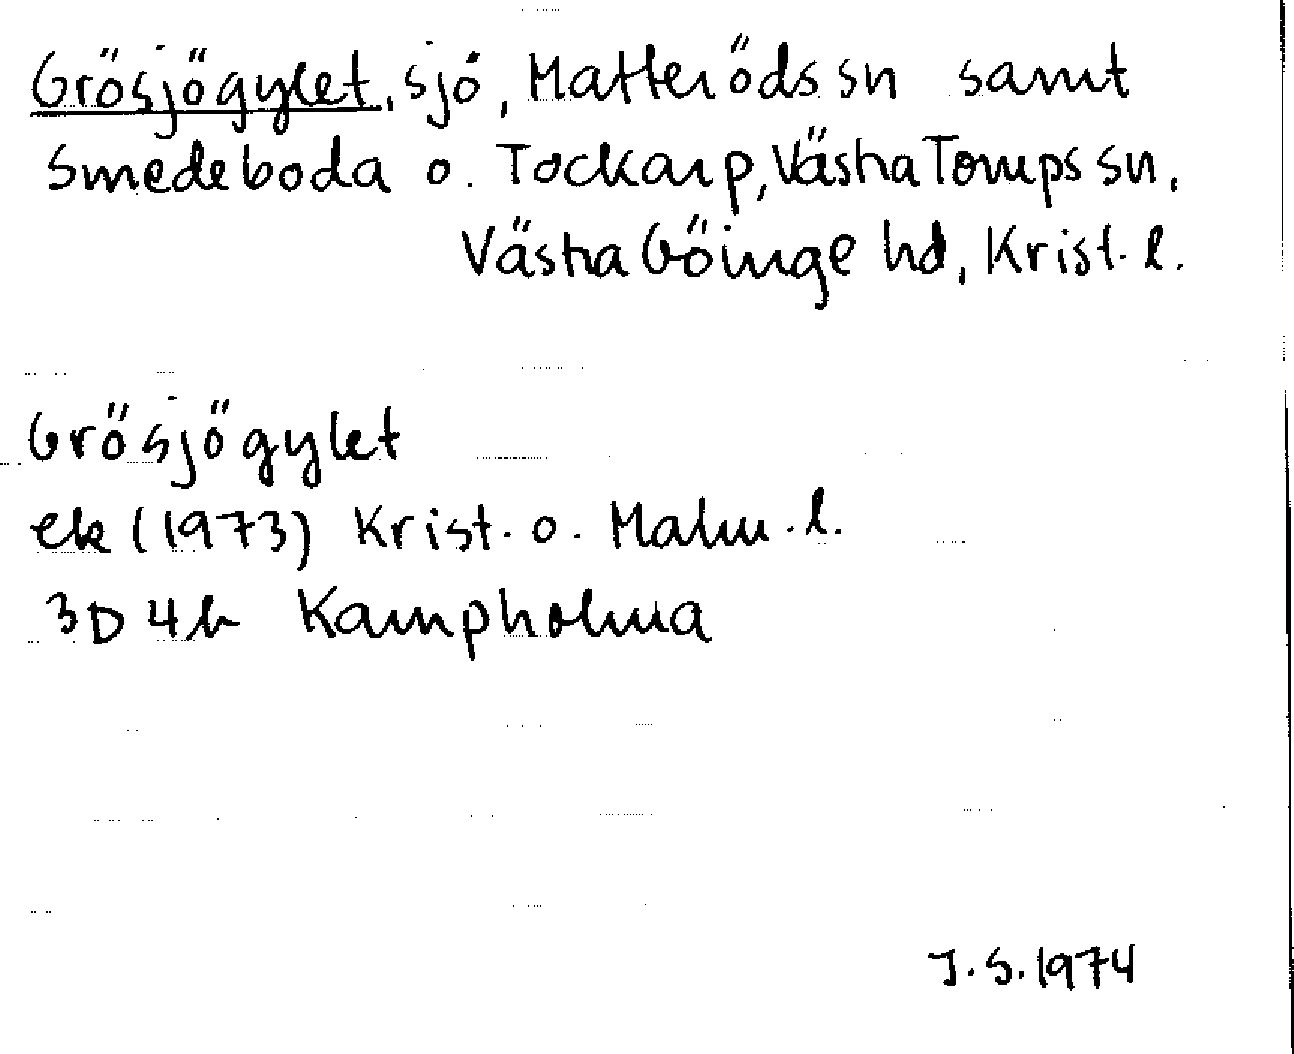 Grösjögylet, sjö, Matteröds sn samt
Smedeboda o. Tockarp, Västra Torups sn,
Västra Göinge hd, Krist. l.
Grösjögylet
ek (1973) Krist. o. Malm. l.
3D 4h Kampholma
J.S. 1974